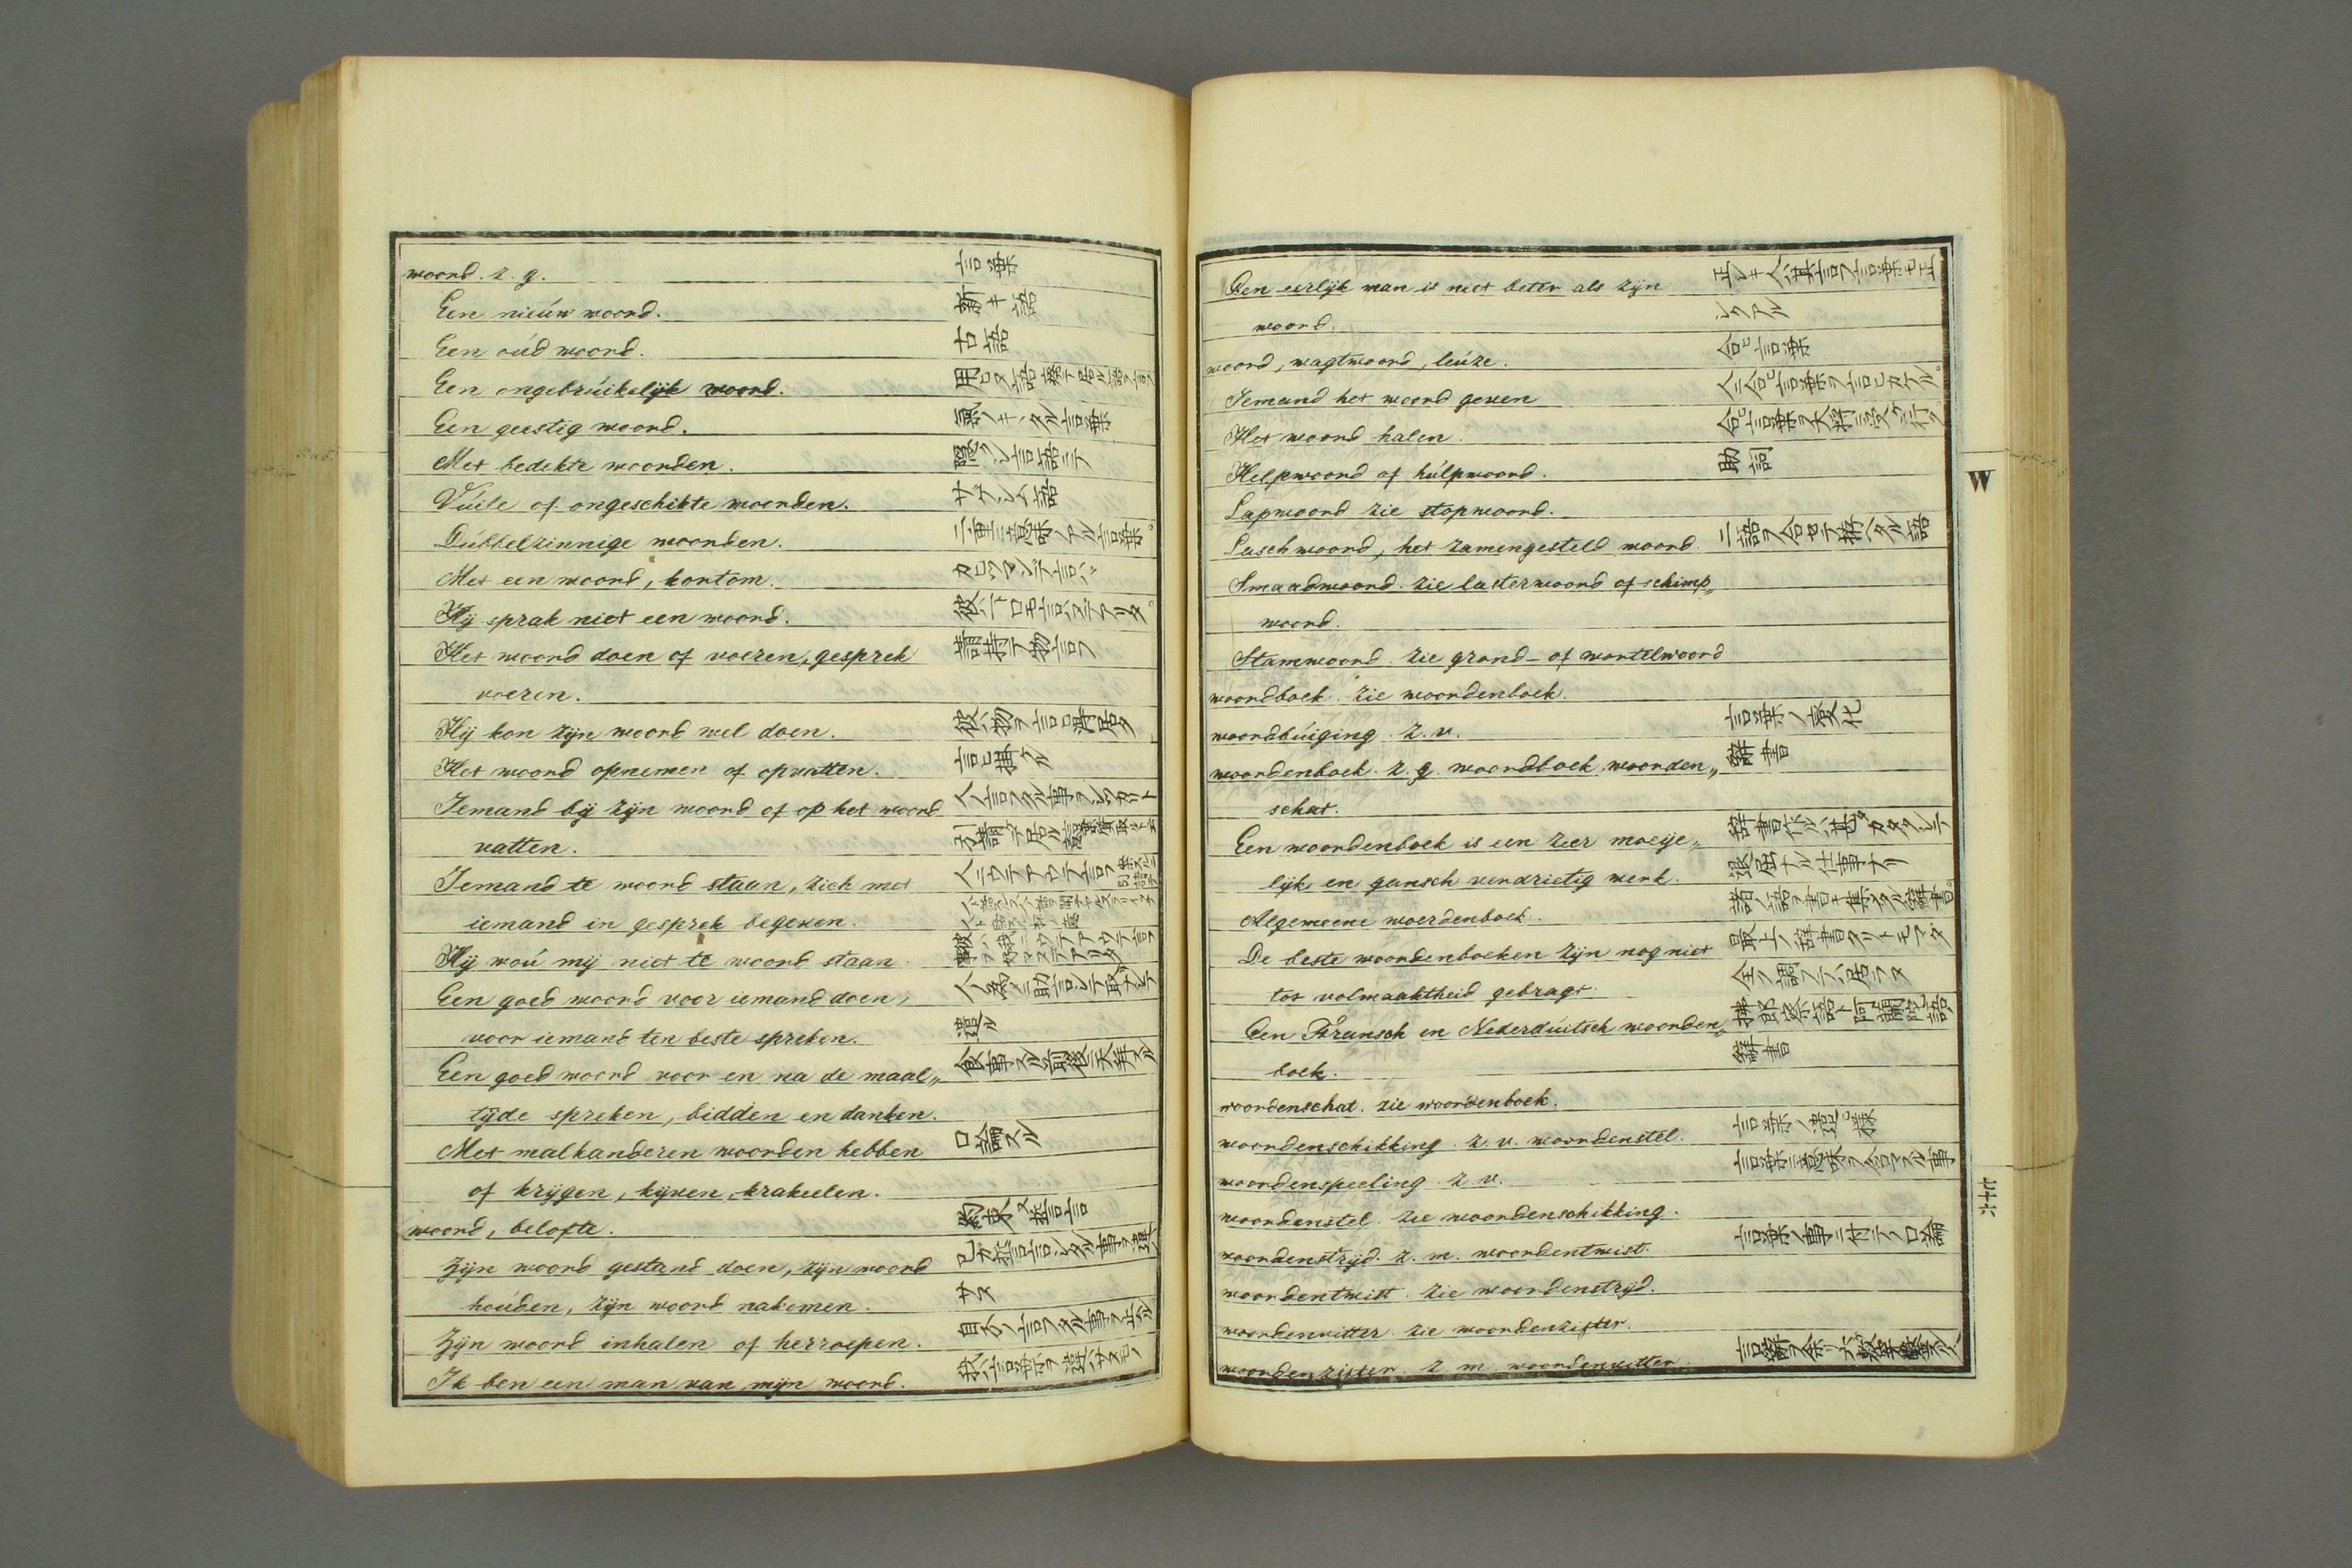 woord. z. g. 言葉
Een nieúw woord. 新キ語
Een oúd woord. 古語
Een ongebrúikelijk woord. 用ヒヌ語 廢テ居ル語ヲ云フ
Een geestig woord. 氣ノキヽタル言葉
Met bedekte woorden. 隱クシ言語ニテ
Vúile of ongeschikte woorden. サゲシム語
Dúbbelzinnige woorden. 二重ニ意味ノアル言葉。
Met een woord, kortom. カヒツマンデ言ハヾ
Hij sprak niet een woord. 彼ハ一口モ言ハズデアリタ。
Het woord doen of voeren, gesprek 請持テ物言フ
voeren.
Hij kon zijn woord wel doen. 彼ハ物ヲ言ヒ得居タ
Het woord opnemen of opvatten. 言ヒ掛クル
Iemand bij zijn woord of op het woord 人ノ言フタル事ヲシツカリト
vatten.
Iemand te woord staan, zich met
iemand in gesprek begeven.
Hij woú mij niet te woord staan.
Een goed woord voor iemand doen, 人ノ爲メニ助言シテ取ナシテ
voor iemand ten beste spreken. 遣ル
Een goed woord voor en na de maal„ 食事スル前後ニ天拜スル
tijde spreken, bidden en danken.
Met malkanderen woorden hebben 口論スル
of krijgen, kijven, krakeelen.
woord, belofte. 約束又誓言
Zijn woord gestand doen, zijn woord 己ガ誓言シタル事ヲ違ハ
hoúden, zijn woord nakomen. サヌ
Zijn woord inhalen of herroepen. 自分ノ言フタル事ヲ止ル
Ik ben een man van mijn woord. 我ハ言葉ヲ違ハサヌモノ
Een eerlijk man is niet beter als zijn 正シキ人ハ其言フ言葉モ正
woord. シクアル
woord, wagtwoord, leúze. 合ヒ言葉
Iemand het woord geven 人ニ合ヒ言葉ヲ言ヒカケル。
Het woord halen. 合ヒ言葉ヲ大將ニ受ケ行ク。
Helpwoord of húlpwoord. 助詞
Lapwoord zie stopwoord.
Laschwoord, het zamengesteld woord. 二語ヲ合セテ拵ヘタル語
Smaadwoord. zie lasterwoord of schimp„
woord.
Stamwoord. zie grond- of wortelwoord
woordboek. zie woordenboek.
woordbúiging. z. v. 言葉ノ変化
woordenboek. z. g. woordboek, woorden„ 辭書
schat.
Een woordenboek is een zeer moeije„ 辞書作ルハ甚ダカタクシテ
lijk en gansch verdrietig werk. 退屈ナル仕事ナリ
Algemeene woordenboek. 諸ノ語ヲ書キ集メタル辭書。
De beste woordenboeken zijn nog niet 最上ノ辞書タリトモマタ
tot volmaaktheid gebragt. 全ク調フテハ居ラヌ
Een Fransch en Nederdúitsch woorden„ 拂郎察語ト阿蘭陀語ノ
boek. 辭書
woordenschat. zie woordenboek.
woordenschikking. z. v. woordenstel. 言葉ノ遣ヒ様
woordenspeeling. z. v. 言葉ニ意味ヲ含マスル事
woordenstel. zie woordenschikking.
woordenstrijd. z. m. woordentwist. 言葉ノ事ニ付テノ口論
woordentwist. zie woordenstrijd.
woordenvitter. zie woordenzifter.
woordenzifter. z. m. woordenvitter.
W